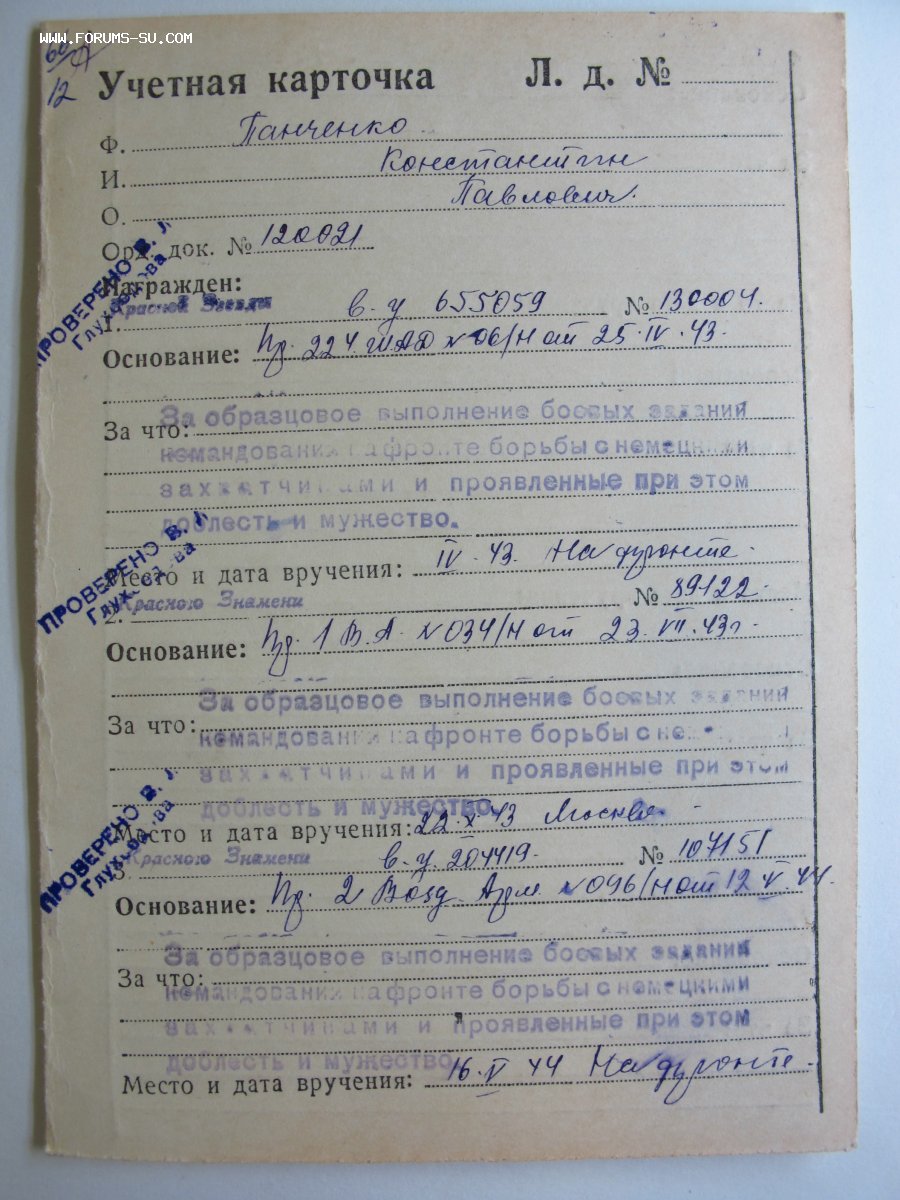 WWW.FORUMS-SU.COM
12
Учетная карточка Л. д. №
Ф. Панченко
И. Константин
О. Павлович.
Орд. док. № 120021
Награжден:
Красной Звезды
1. в-у 655059 № 130004.
Основание: Пр. 224 ШАД № 06/Н от 25. IV. 43.
За что: За образцовое выполнение боевых заданий
командования на фронте борьбы с немецкими
захватчиками и проявленные при этом
доблесть и мужество.
Место и дата вручения: IV. 43. На фронте.
Красного Знамени
2. № 89122.
Основание: Пр. 1 В.А. № 034/Н от 23. VII. 43г.
За что: За образцовое выполнение боевых заданий
командования на фронте борьбы с
захватчиками и проявленные при этом
доблесть и мужество.
Место и дата вручения: 22 X 43 Москва.
Красного Знамени
3. в-у. 204419. № 107151
Основание: Пр. 2 Возд. Арм. № 096/Н от 12. V. 44.
За что: За образцовое выполнение боевых заданий
командования на фронте борьбы с немецкими
захватчиками и проявленные при этом
доблесть и мужество
Место и дата вручения: 16. V 44 На фронте.
ПРОВЕРЕНО В. Л
ПРОВЕРЕНО В. Л
ПРОВЕРЕНО В.